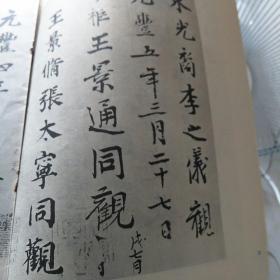 朱光裔李之儀觀
元豐五年三月二十七日
王景通同觀
王景脩張太寧同觀
元豐四